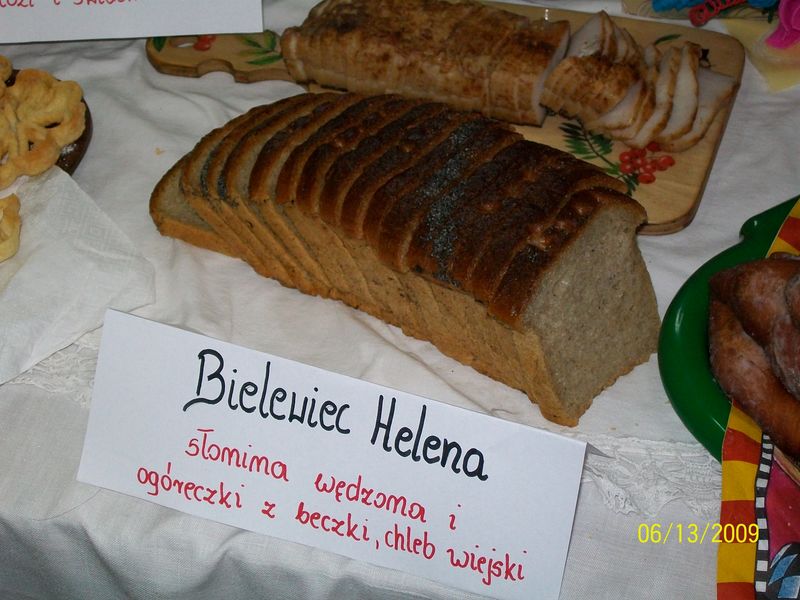 Bielewiec Helena
słonina wędzona i
ogóreczki z beczki, chleb wiejski
06/13/2009